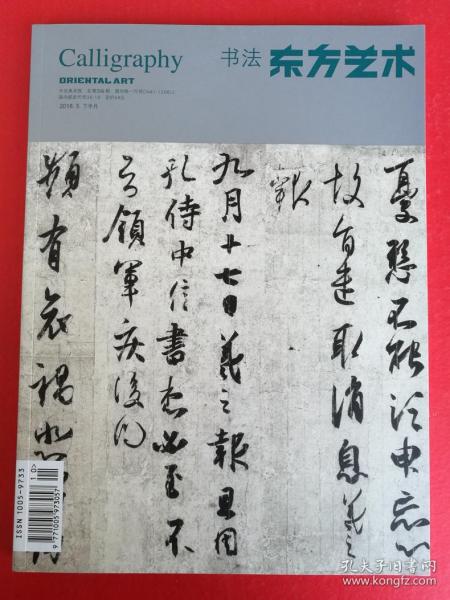 Calligraphy
书法 东方艺术
ORIENTAL ART
2016.5 下半月
憂懸不能須臾忘心
故旨遣取消息羲之
報
九月十七日羲之報且因
孔侍中信書想必至不
知領軍疾後問
頻有哀禍
ISSN 1005-9733
9 771005 973057
10>
孔夫子旧书网
kongfz.com